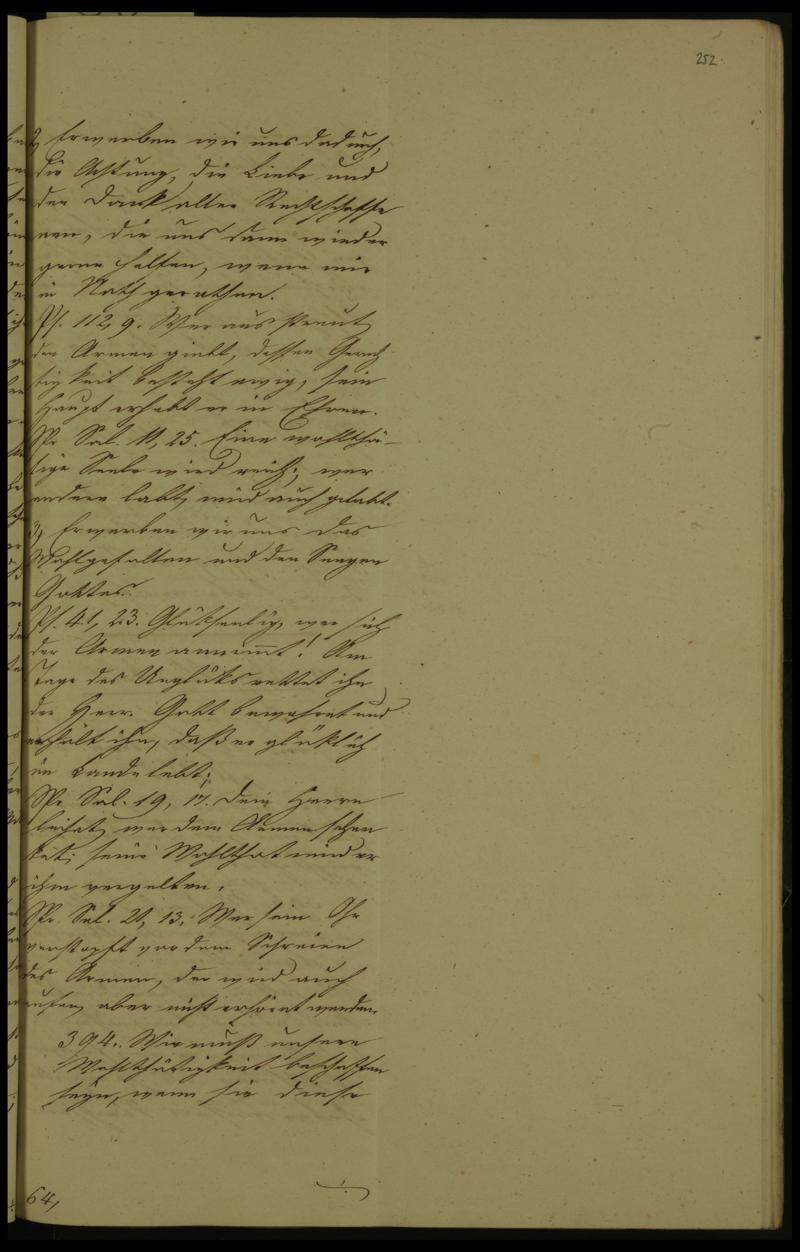 252.
2, Erwerben wir uns dadurch,
die Achtung, die Liebe und
den Dank aller Rechtschaffe
nen, die uns dann wieder
gerne helfen, wenn wir
in Noth gerathen.
Ps. 112, 9. Wer ausstreut,
den Armen giebt, dessen Gerech-
tigkeit besteht ewig, sein
Haupt erhebt er in Ehren.
Spr. Sal. 11, 25. Eine wohlthä-
tige Seele wird reich; wer
andere labt, wird auch gelabt.
3, Erwerben wir uns das
Wohlgefallen und den Seegen
Gottes.
Ps. 41, 2.3. Glükseelig, wer sich
der Armen annimt! Am
Tage des Unglüks rettet ihn
der Herr. Gott bewahret und
erhält ihn, daß er glüklich
im Lande lebt;
Spr. Sal. 19, 17. Dem Herrn
leihet, wer dem Armen schen
ket; seine Wohlthat wird er
ihm vergelten.
Spr. Sal. 21, 13. Wer sein Ohr
verstopft vor dem Schreien
des Armen, der wird auch
rufen, aber nicht erhöret werden.
394. Wie muß unsere
Wohlthätigkeit beschaffen
seyn, wenn sie diese
64,